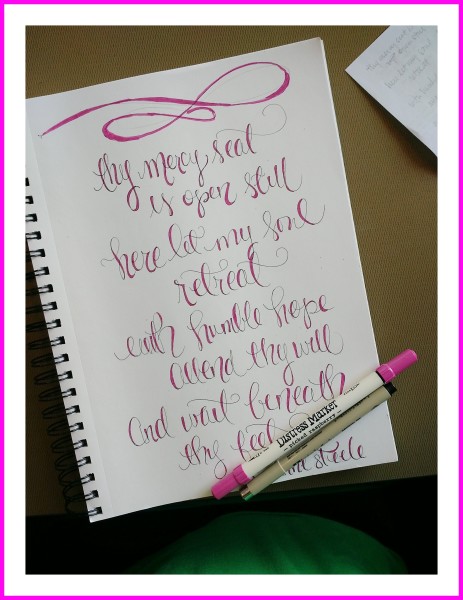 thy mercy seat
is open still
here let my soul
retreat
with humble hope
attend thy will
And wait beneath
thy feet
Distress Marker
picked raspberry
steele